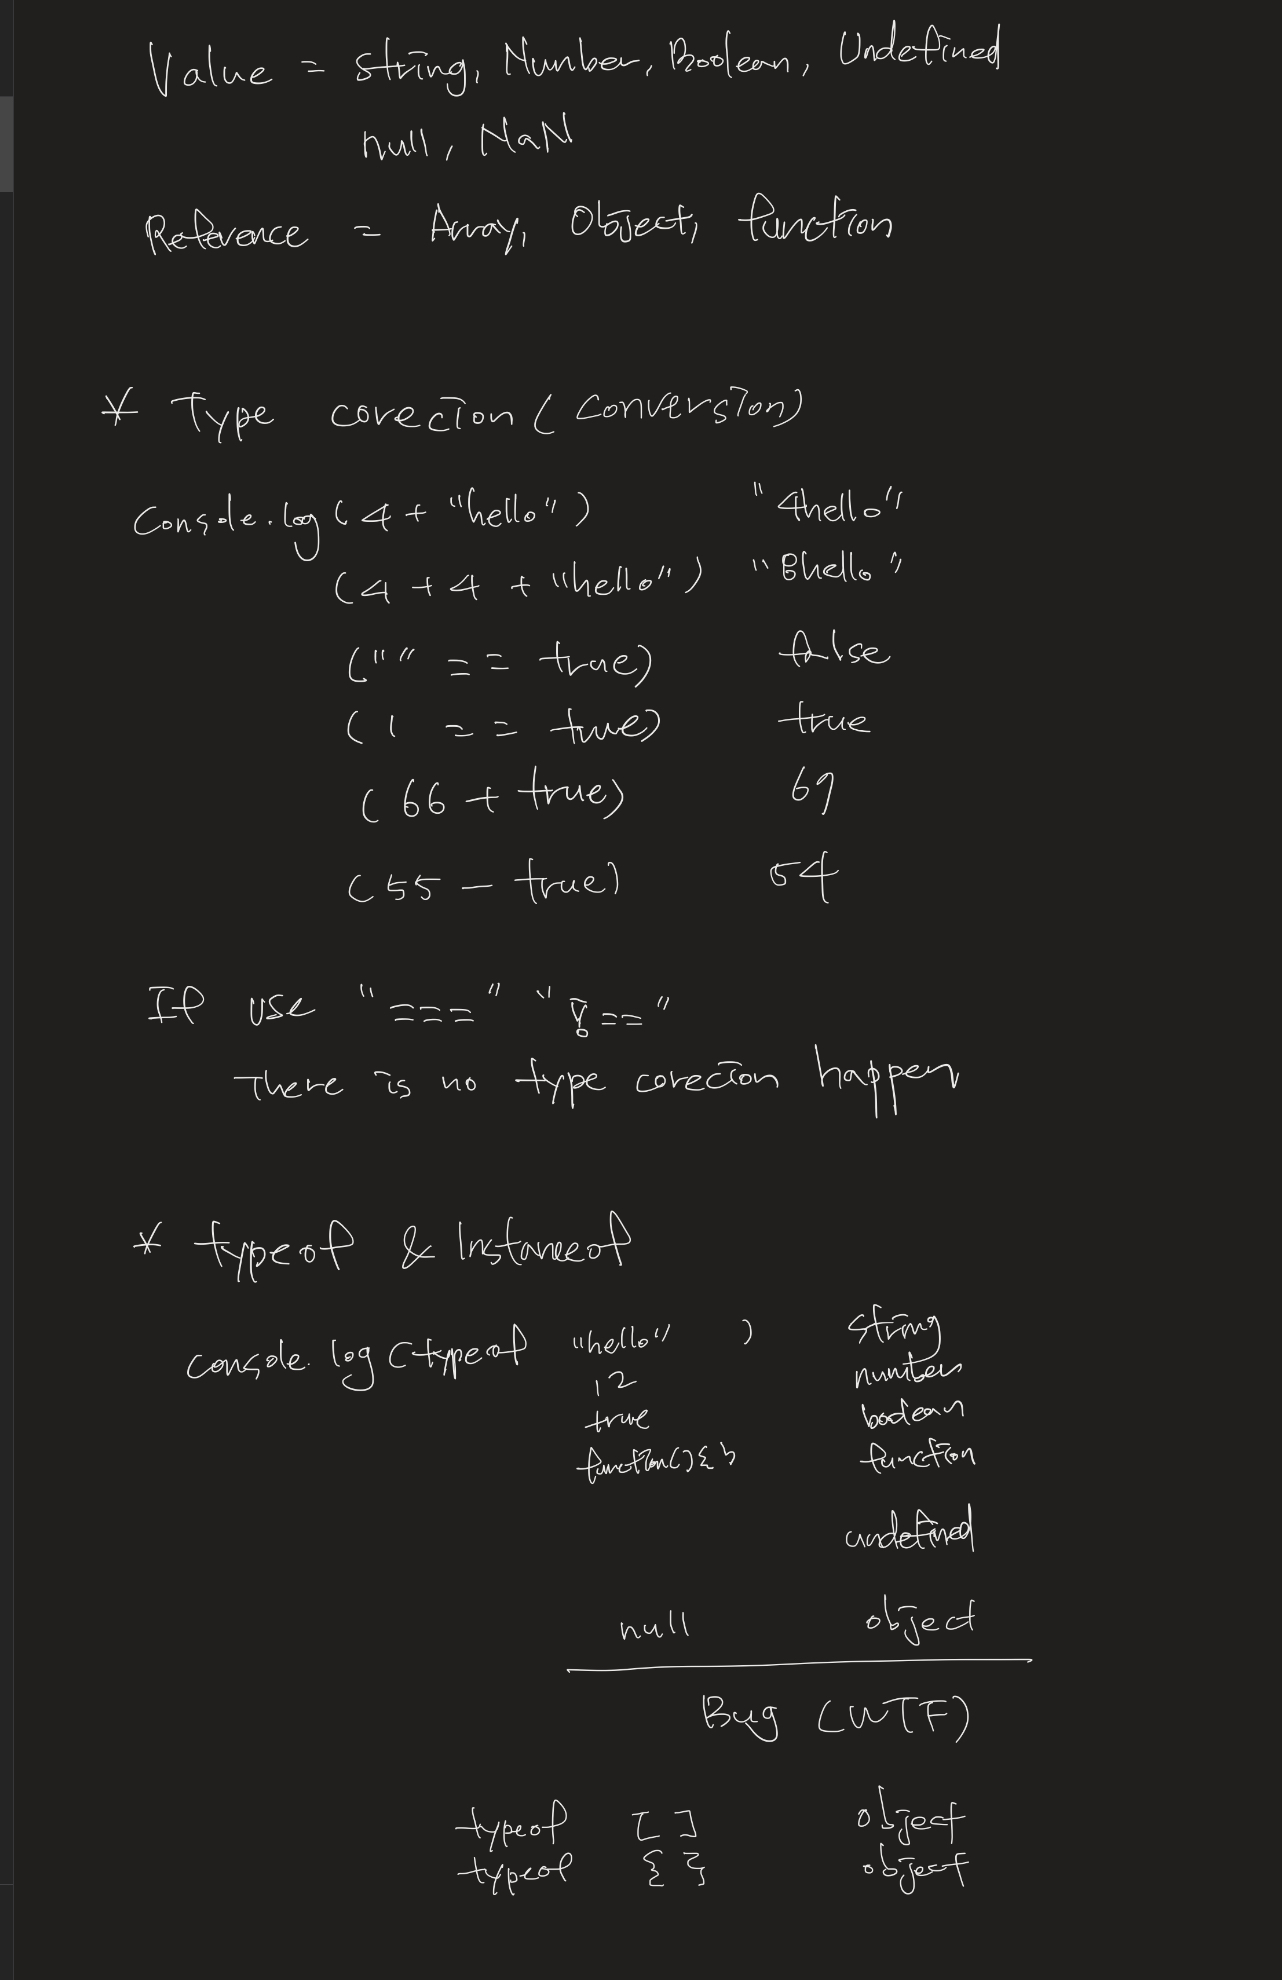 Value = string, Number, Boolean, Undefined
null, NaN
Reference = Array, Object, function
* Type corection (conversion)
Console.log (4 + "hello") "4hello"
(4 + 4 + "hello") "8hello"
("" == true) false
(1 == true) true
(66 + true) 69
(55 - true) 54
If use "===" "!=="
There is no type corection happen
* typeof & Instanceof
console.log (typeof "hello" ) string
12 number
true boolean
function(){} function
undefined
null object
Bug (WTF)
typeof [] object
typeof {} object